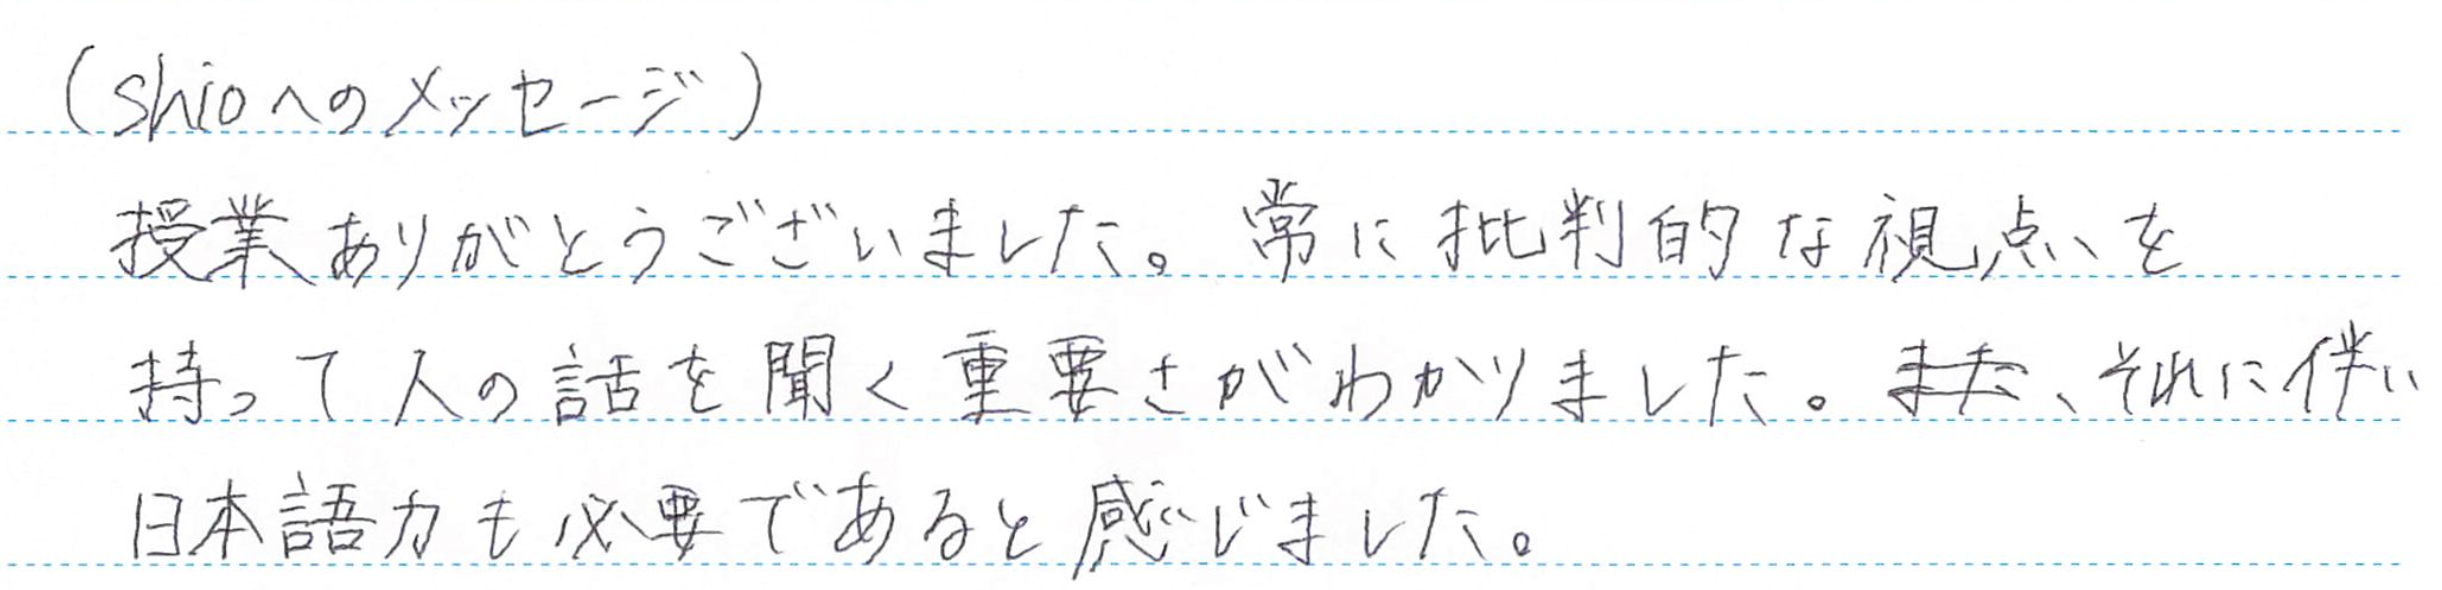 (shioへのメッセージ)
授業ありがとうございました。常に批判的な視点を
持って人の話を聞く重要さがわかりました。また、それに伴い
日本語力も必要であると感じました。